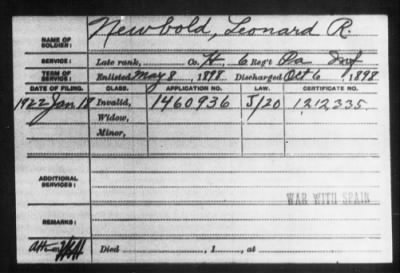 NAME OF SOLDIER: Newbold, Leonard R.
SERVICE: Late rank, Co. H, 6 Reg't Pa Inf
TERM OF SERVICE: Enlisted May 8, 1898. Discharged Oct 6, 1898.
DATE OF FILING. CLASS. APPLICATION NO. LAW. CERTIFICATE NO.
1922 Jan 18 Invalid, 1460936 J/20 1212335
Widow,
Minor,
ADDITIONAL SERVICES:
WAR WITH SPAIN
REMARKS:
Died , 1 , at